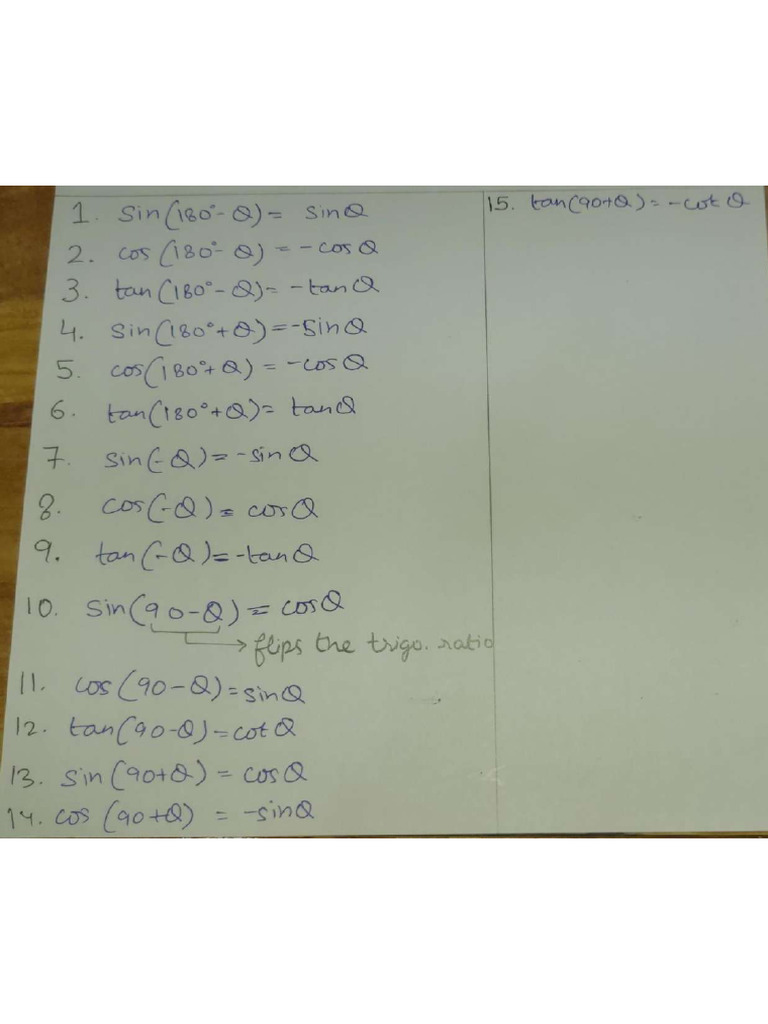 1. sin(180°- θ) = sinθ
2. cos(180°- θ) = -cosθ
3. tan(180°- θ) = -tanθ
4. sin(180°+θ) = -sinθ
5. cos(180°+θ) = -cosθ
6. tan(180°+θ) = tanθ
7. sin(-θ) = -sinθ
8. cos(-θ) = cosθ
9. tan(-θ) = -tanθ
10. sin(90-θ) = cosθ
flips the trigo. ratio
11. cos(90-θ) = sinθ
12. tan(90-θ) = cotθ
13. sin(90+θ) = cosθ
14. cos(90+θ) = -sinθ
15. tan(90+θ) = -cotθ